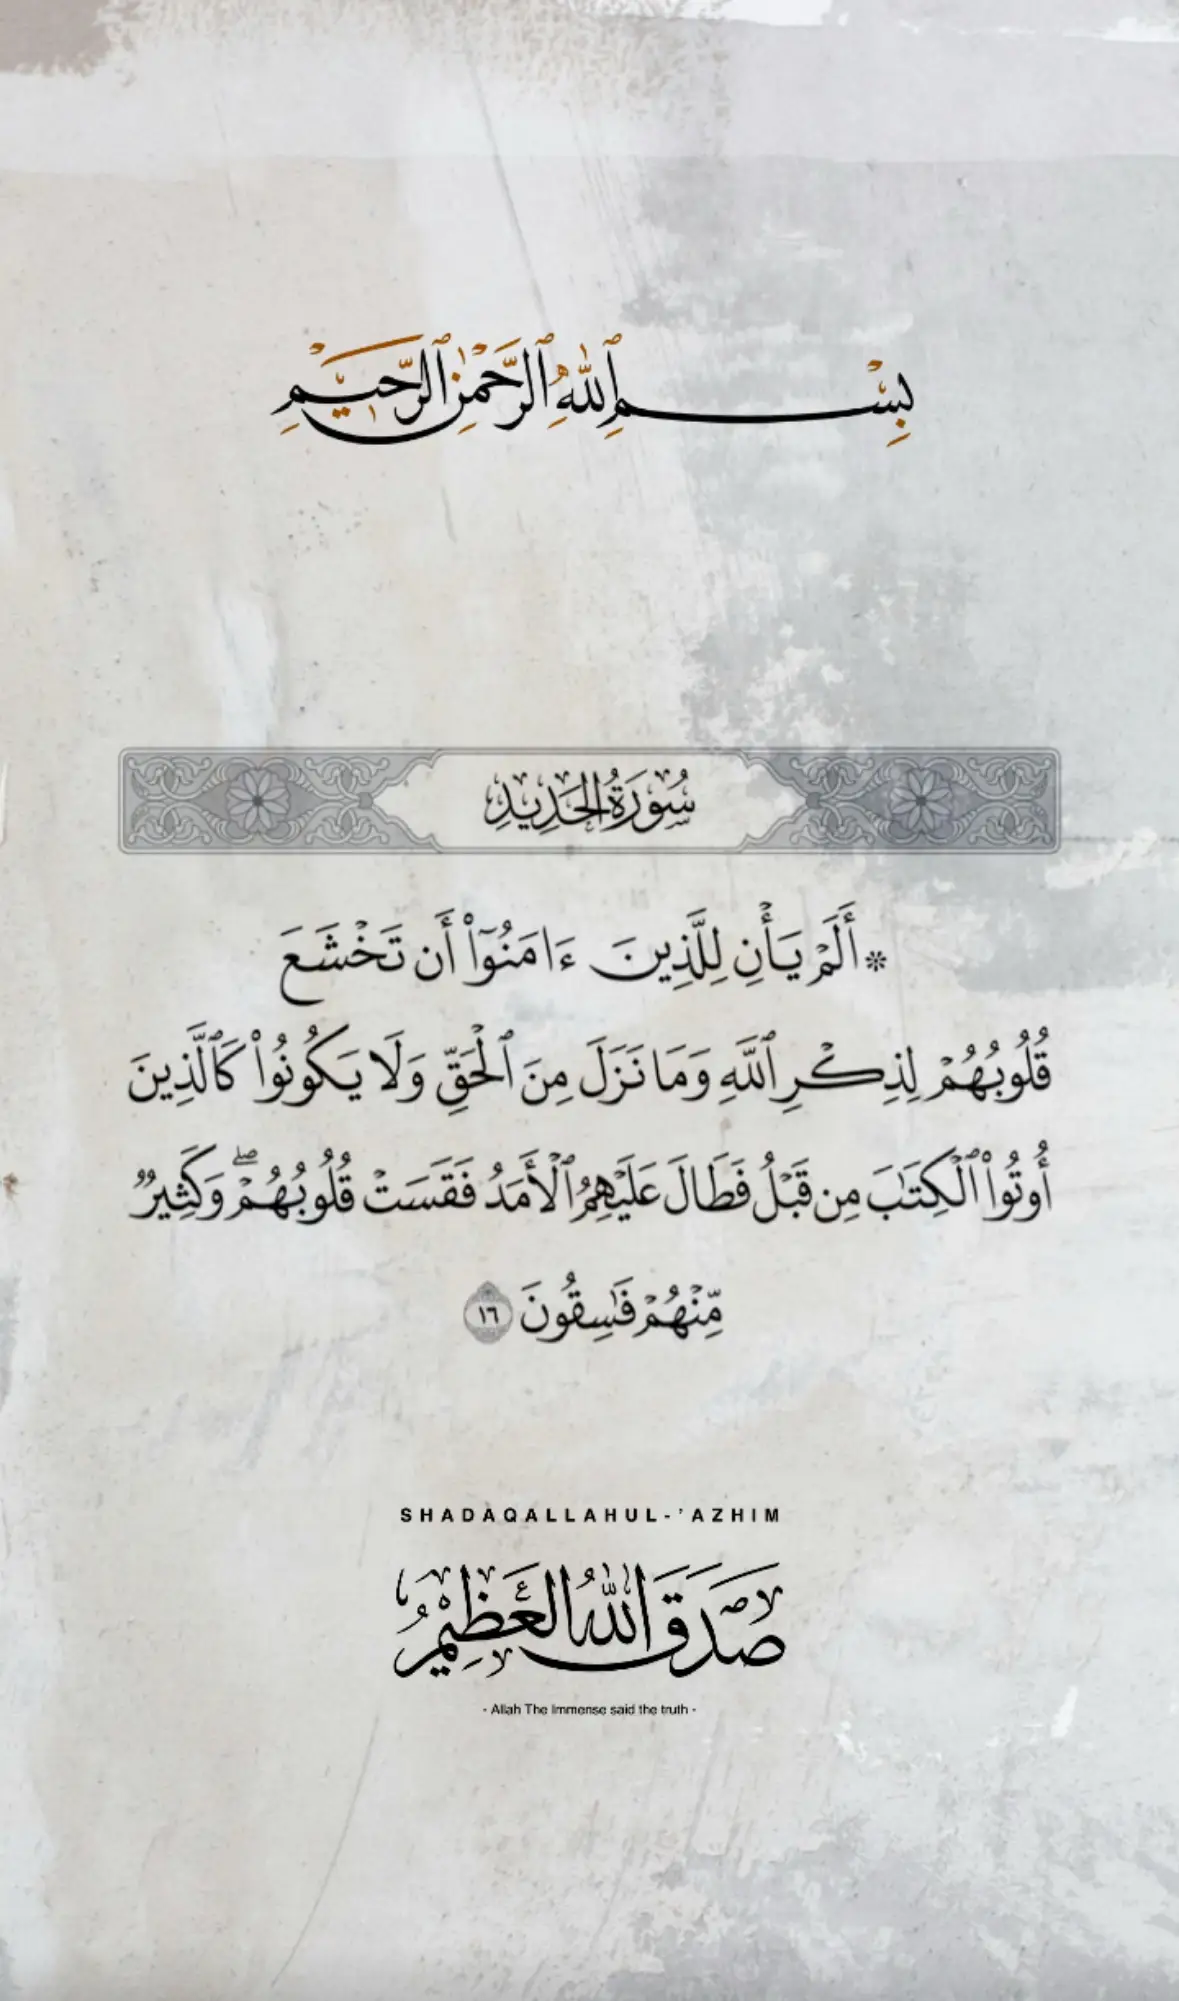 بِسْمِ ٱللَّهِ ٱلرَّحْمَٰنِ ٱلرَّحِيمِ
سُورَةُ الحَدِيدِ
* أَلَمۡ يَأۡنِ لِلَّذِينَ ءَامَنُوٓاْ أَن تَخۡشَعَ
قُلُوبُهُمۡ لِذِكۡرِ ٱللَّهِ وَمَا نَزَلَ مِنَ ٱلۡحَقِّ وَلَا يَكُونُواْ كَٱلَّذِينَ
أُوتُواْ ٱلۡكِتَٰبَ مِن قَبۡلُ فَطَالَ عَلَيۡهِمُ ٱلۡأَمَدُ فَقَسَتۡ قُلُوبُهُمۡۖ وَكَثِيرٞ
مِّنۡهُمۡ فَٰسِقُونَ ١٦
SHADAQALLAHUL-'AZHIM
صَدَقَ اللهُ العَظِيمُ
- Allah The Immense said the truth -